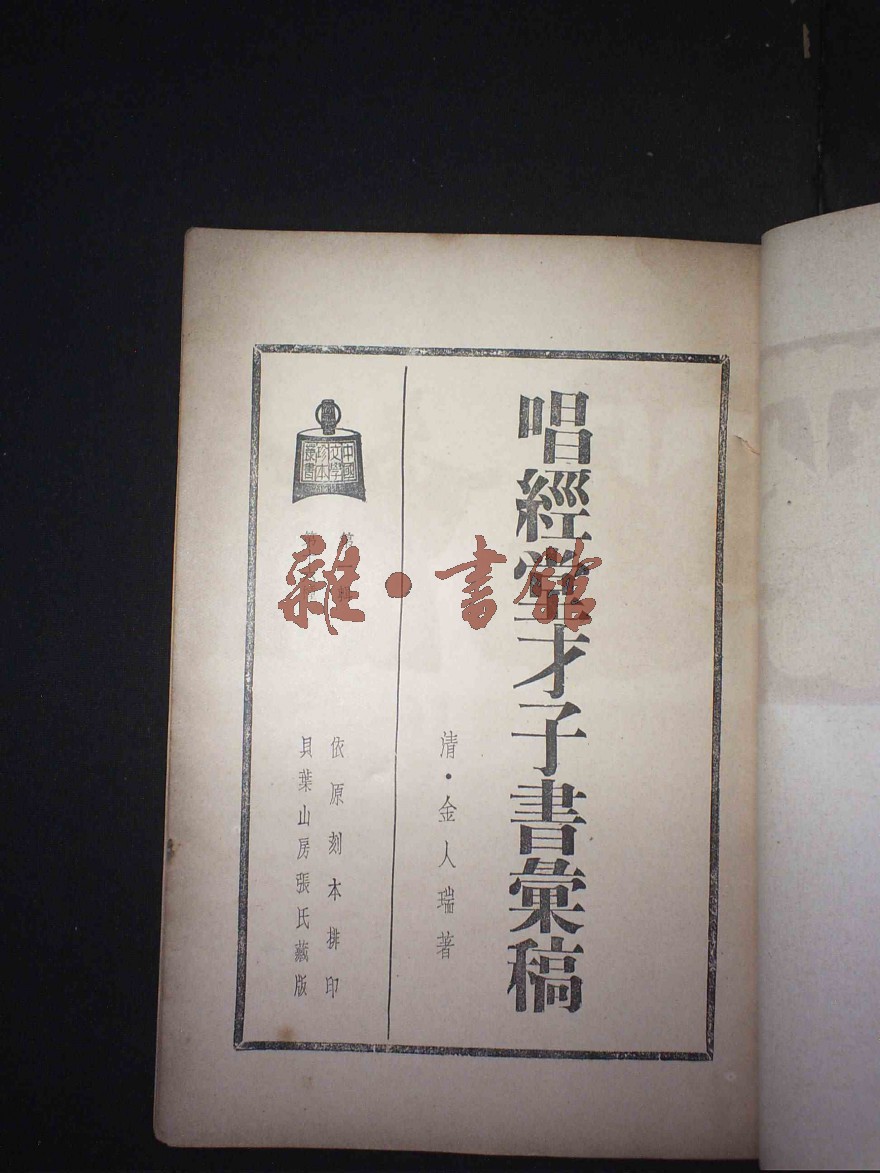 唱經堂才子書彙稿
清·金人瑞著
中國
文學
珍本
叢書
第一輯
依原刻本排印
貝葉山房張氏藏版
雜·書館